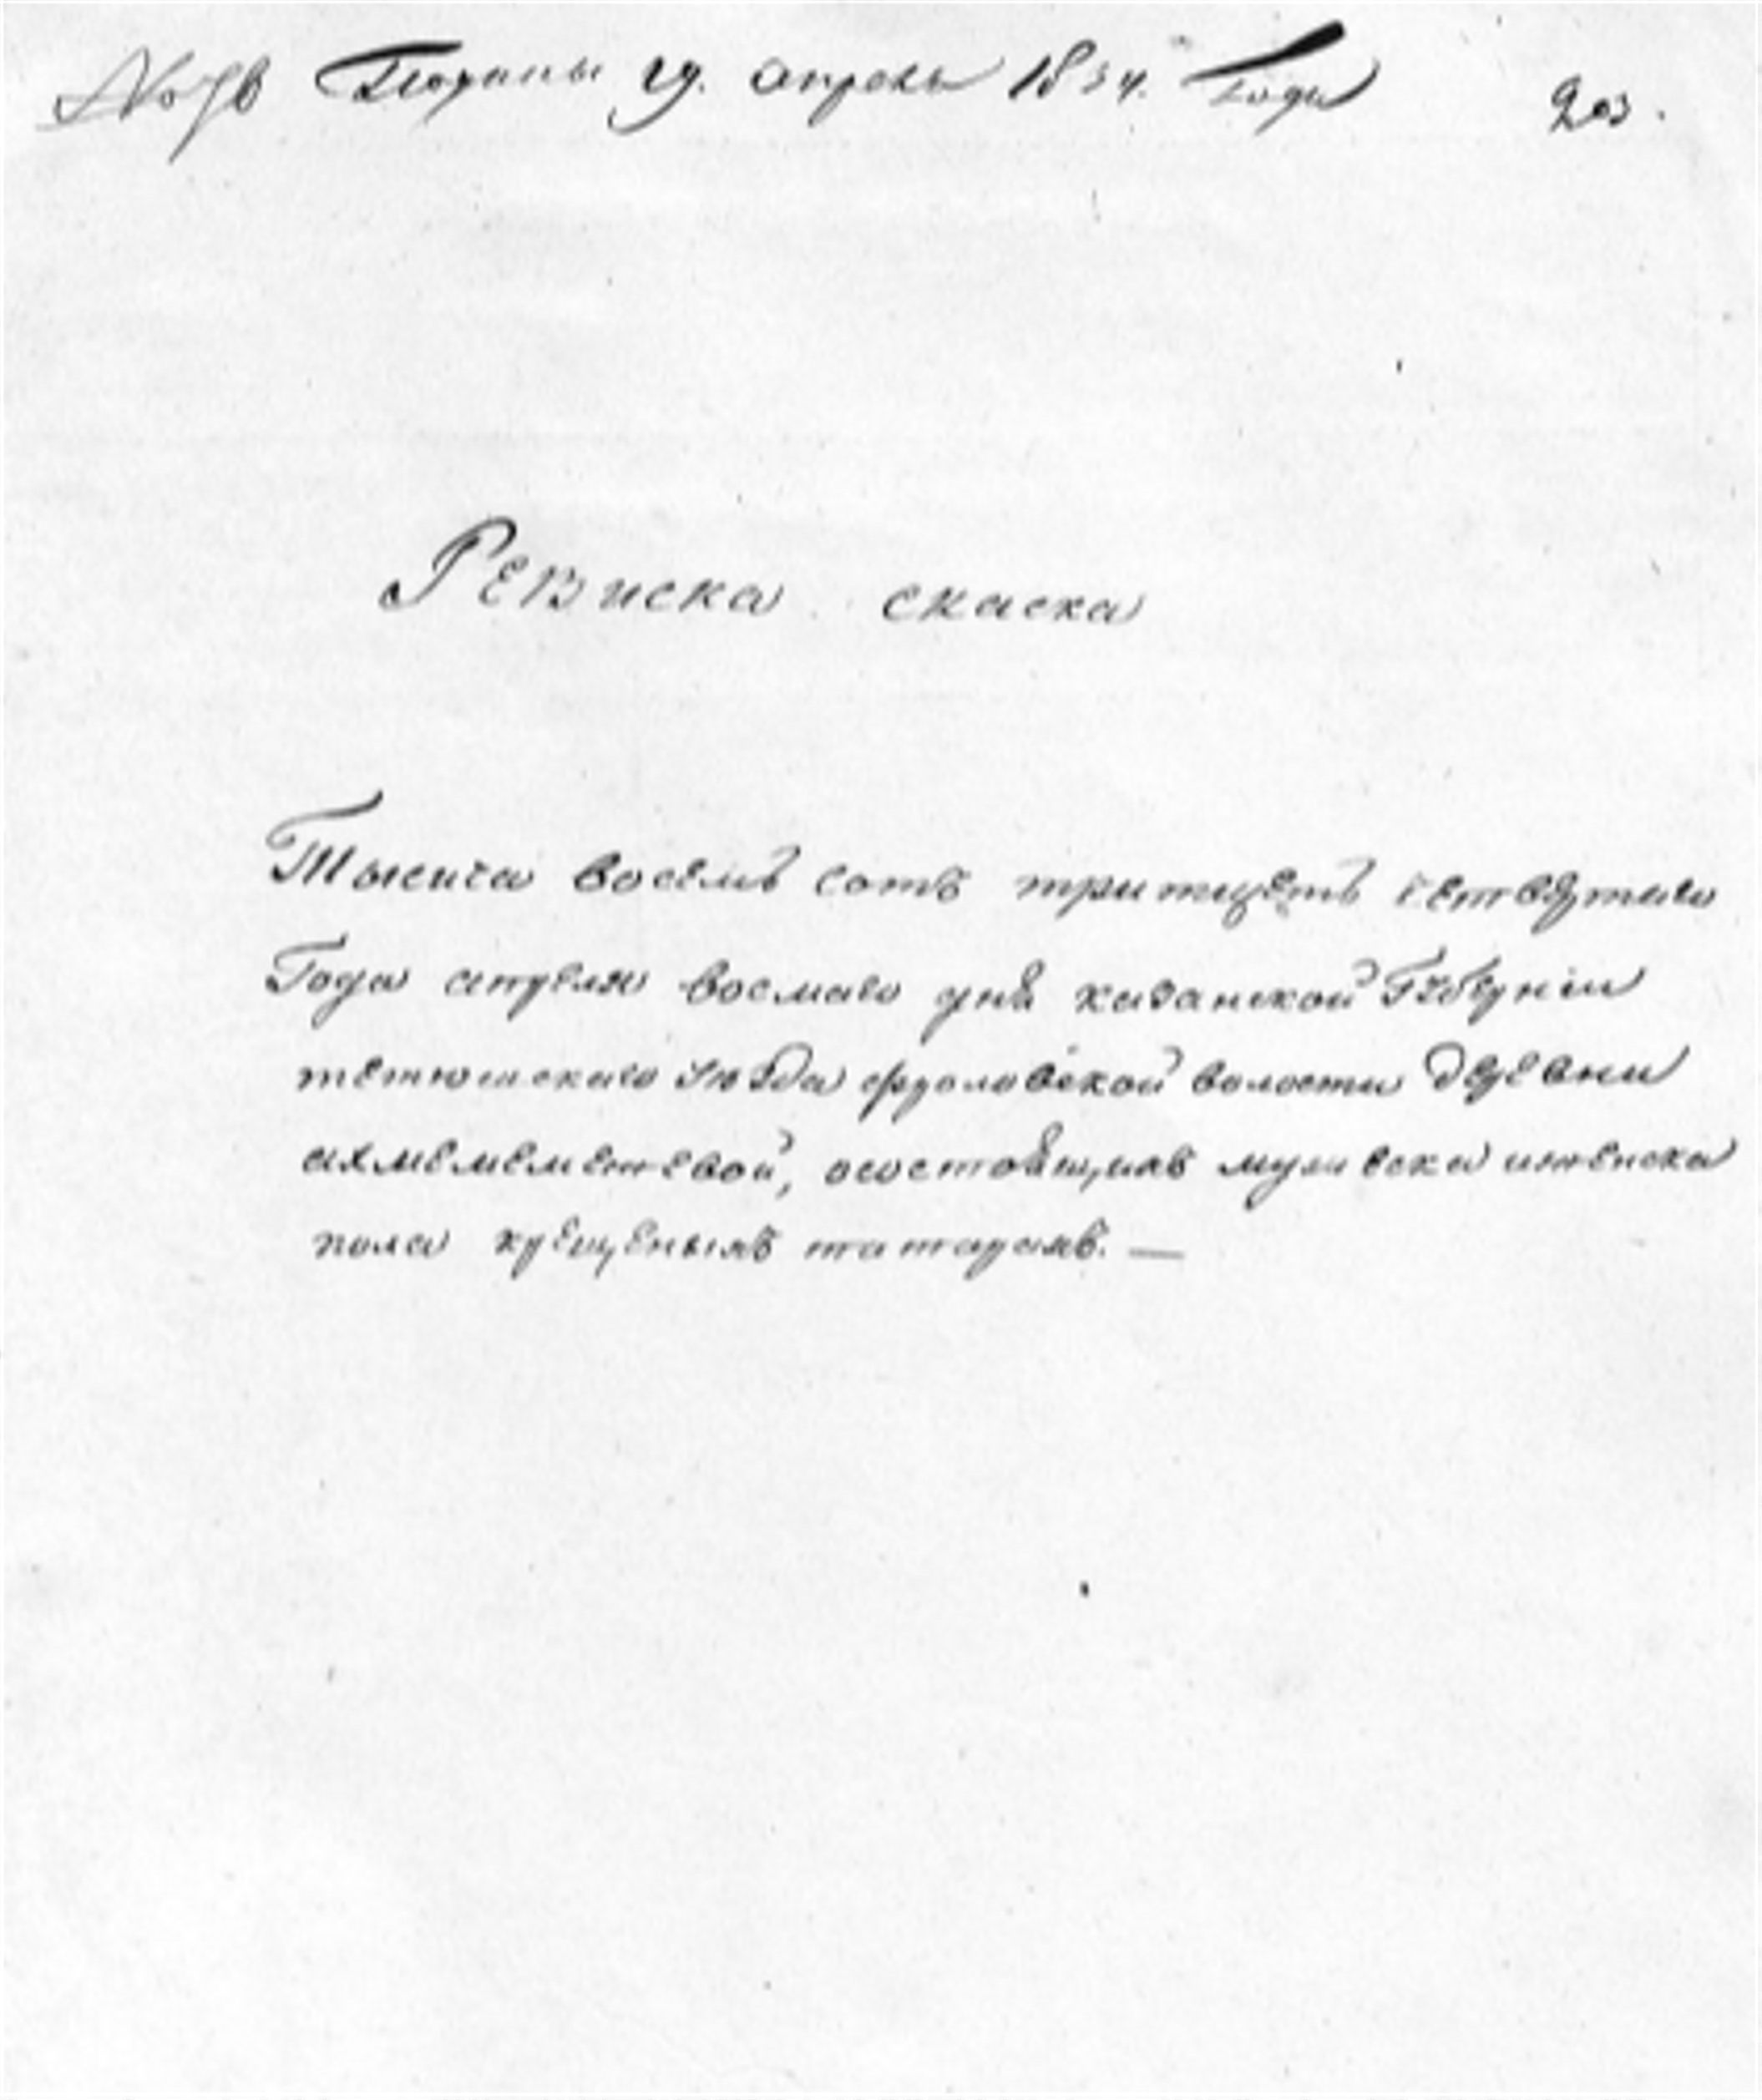 апреля 1834. Года 203.
Ревиска скаска
Тысича восемь сотъ тритцеть четвертаго
Года апреля восмаго дня казанской Губернии
тетюшскаго уезда фроловской волости деревни
ахмеметевой, осостоящихъ мужеска иженска
пола крещеныхъ татарахъ. —